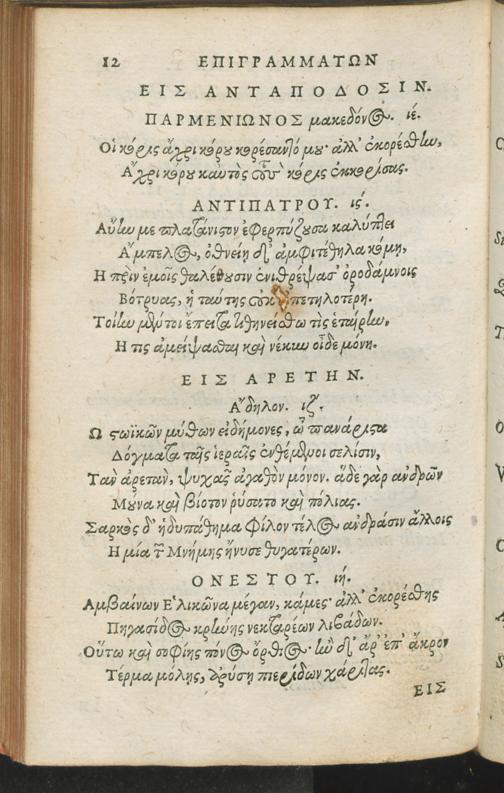 12 ΕΠΙΓΡΑΜΜΑΤΩΝ
ΕΙΣ ΑΝΤΑΠΟΔΟΣΙΝ.
ΠΑΡΜΕΝΙΩΝΟΣ μακεδόνος. ιέ.
Οἱ κόρις ἄχρι κόρου κορέσαντό μου· ἀλλ' ἐκορέσθην,
Ἄχρι κόρου καυτὸς τοὺς κόρις ἐκκορίσας.
ΑΝΤΙΠΑΤΡΟΥ. ις.
Αὔην με πλατάνιστον ἐφερπύζουσα καλύπτει
Ἄμπελος, ὀθνείη δ' ἀμφιτέθηλα κόμῃ,
Η πρὶν ἐμοῖς θαλέθουσιν ἐνιθρέψασ' ὀροδάμνοις
Βότρυας, ἡ ταύτης οὐκ πετηλοτέρη.
Τοίην μέντοι ἔπειτα τιθηνείσθω τὶς ἑταίρην,
Η τις ἀμείψασθαι καὶ νέκυν οἶδε μόνη.
ΕΙΣ ΑΡΕΤΗΝ.
Ἄδηλον. ιζ.
Ω στωϊκῶν μύθων εἰδήμονες, ὦ πανάριστα
Δόγματα ταῖς ἱεραῖς ἐνθέμενοι σελίσιν,
Τὰν ἀρετὰν, ψυχᾶς ἀγαθὸν μόνον. ἅδε γὰρ ἀνδρῶν
Μούνα καὶ βίοτον ῥύσατο καὶ πόλιας.
Σαρκὸς δ' ἡδυπάθημα φίλον τέλος ἀνδράσιν ἄλλοις
Η μία τῶν Μνήμης ἤνυσε θυγατέρων.
ΟΝΕΣΤΟΥ. ιή.
Αμβαίνων Ἑλικῶνα μέγαν, κάμες· ἀλλ' ἐκορέσθης
Πηγασίδος κρήνης νεκταρέων λιβάδων.
Οὕτω καὶ σοφίης πόνος ὄρθιος· ἢν δ' ἄρ' ἐπ' ἄκρον
Τέρμα μόλῃς, δρύσῃ πιερίδων χάριτας.
ΕΙΣ